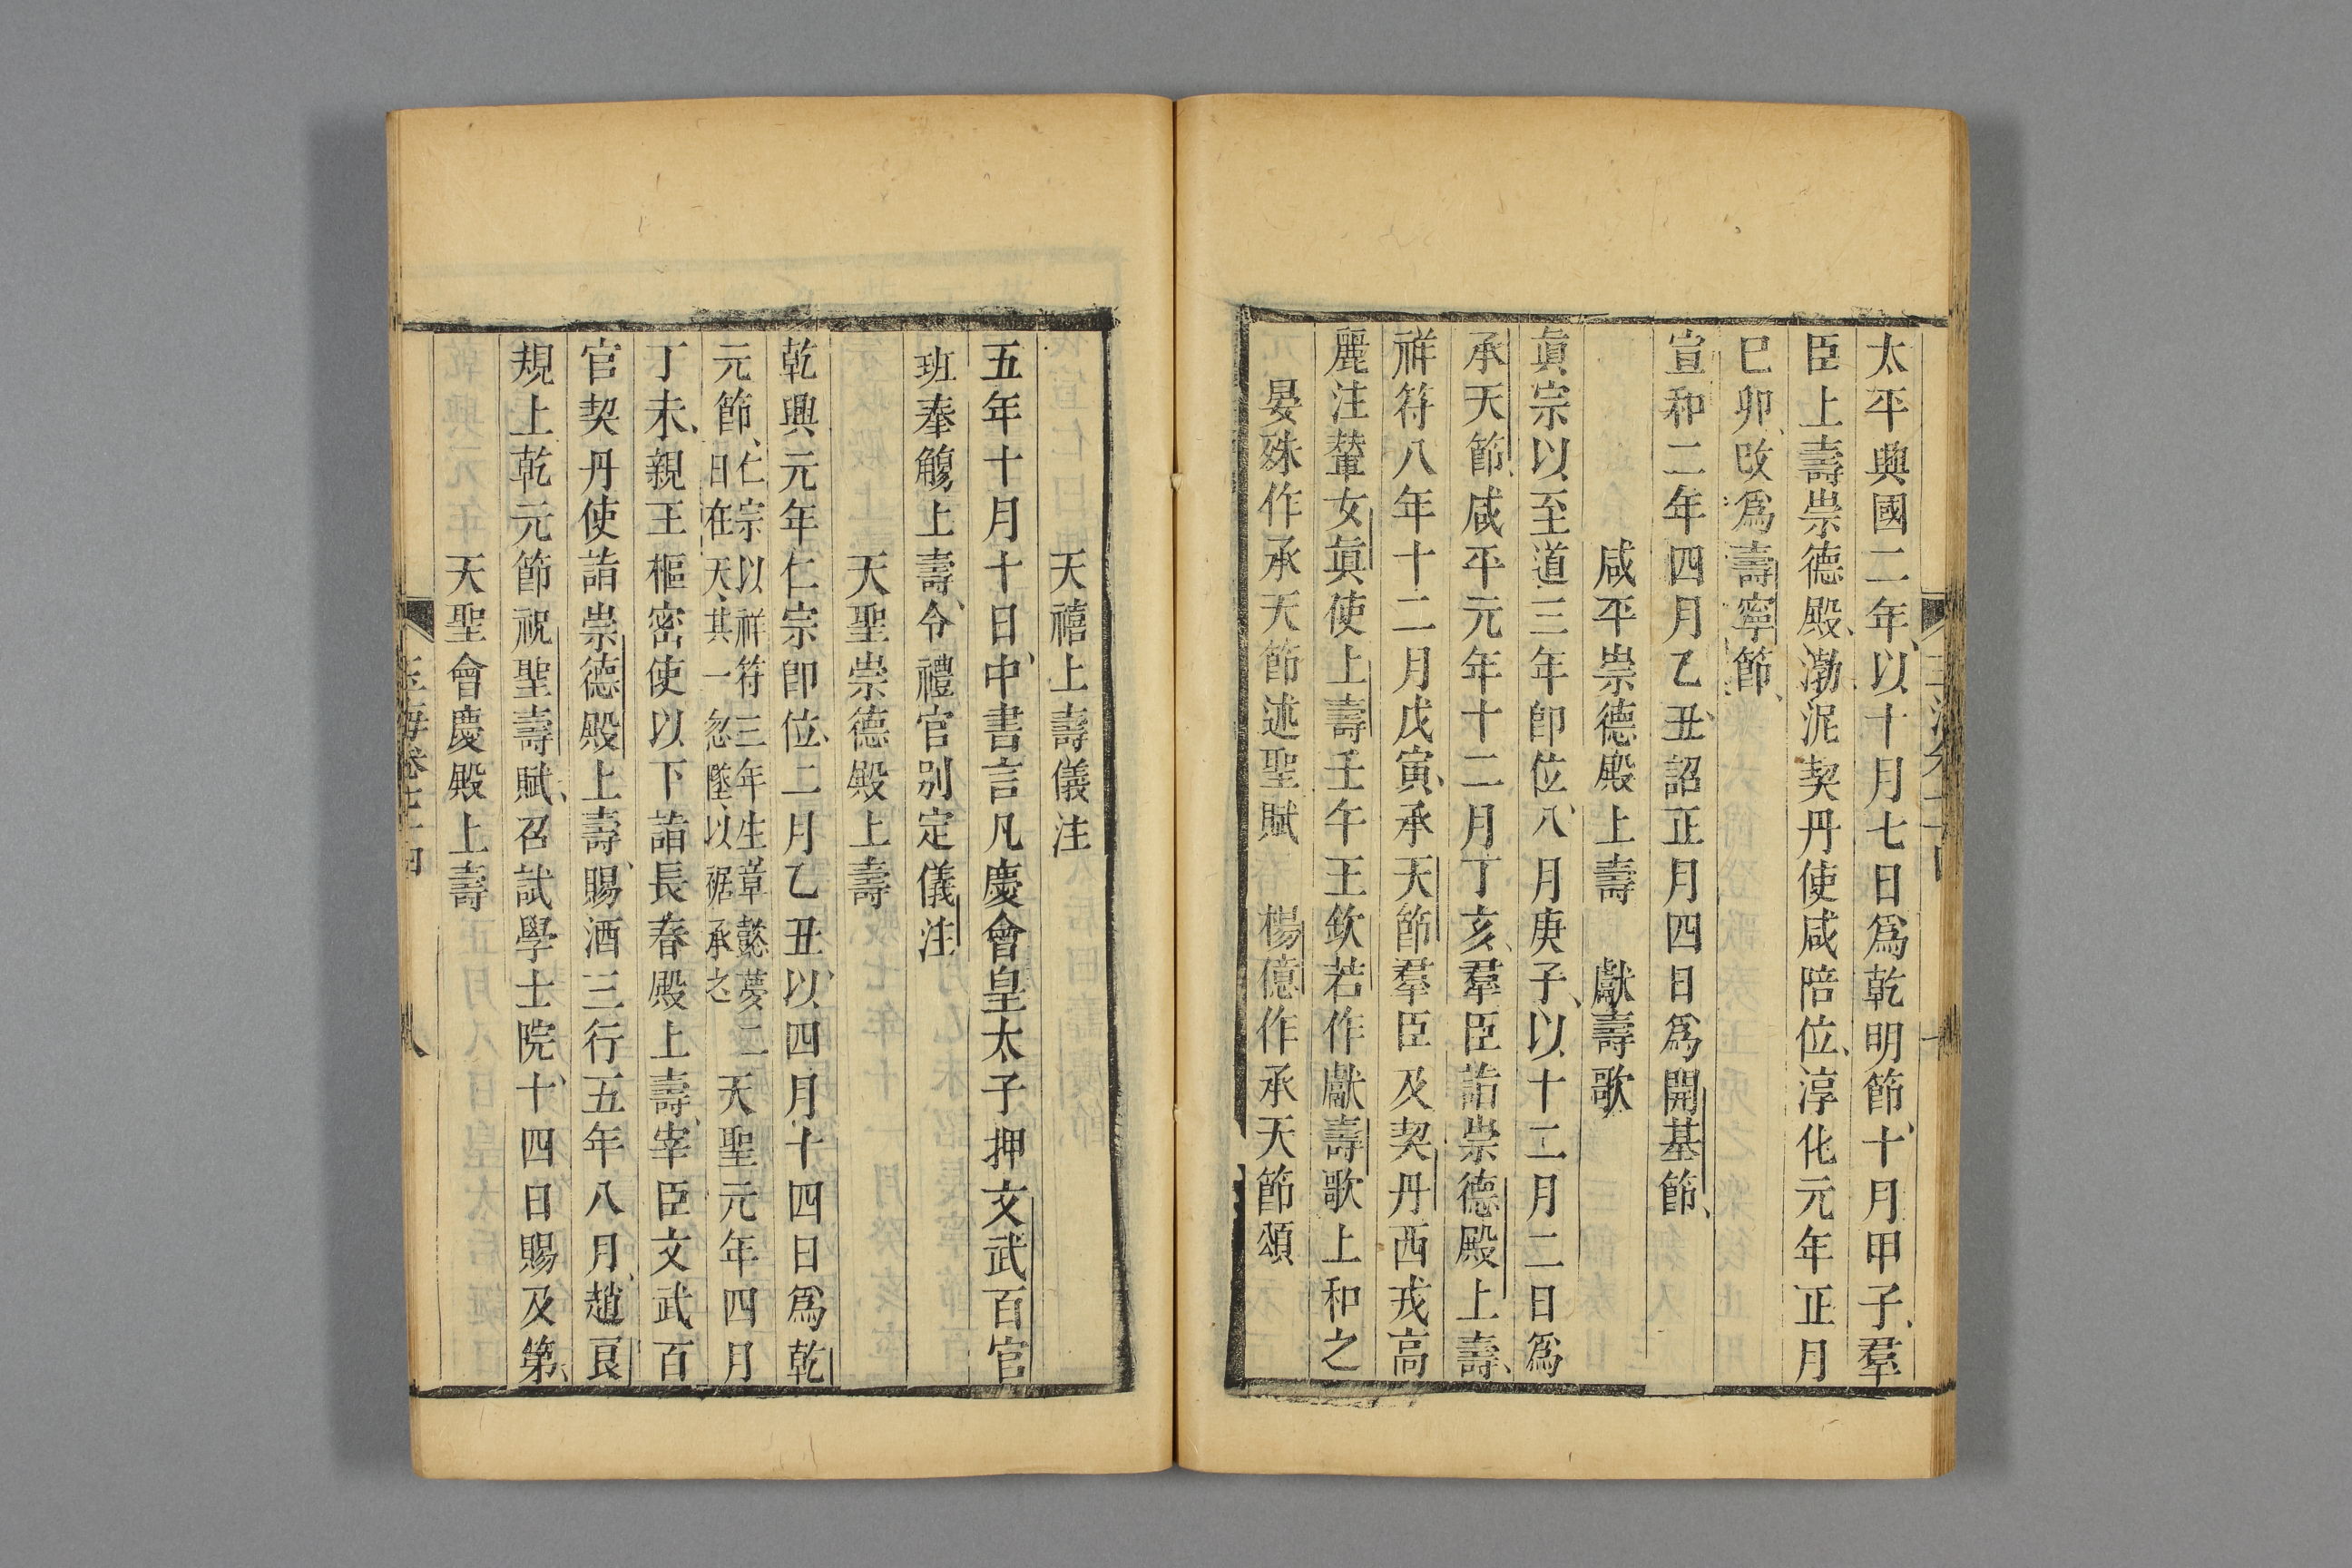 太平興國二年以十月七日爲乾明節十月甲子羣
臣上壽崇德殿渤泥契丹使咸陪位淳化元年正月
巳卯改爲壽寧節
宣和二年四月乙丑詔正月四日爲開基節
咸平崇德殿上壽 獻壽歌
眞宗以至道三年卽位八月庚子以十二月二日爲
承天節咸平元年十二月丁亥羣臣詣崇德殿上壽
祥符八年十二月戊寅承天節羣臣及契丹西戎高
麗注輦女眞使上壽壬午王欽若作獻壽歌上和之
晏殊作承天節述聖賦 楊億作承天節頌
天禧上壽儀注
五年十月十日中書言凡慶會皇太子押文武百官
班奉觴上壽令禮官別定儀注
天聖崇德殿上壽
乾興元年仁宗卽位二月乙丑以四月十四日爲乾
元節仁宗以祥符三年生章懿夢二日在天其一忽墜以裾承之天聖元年四月
丁未親王樞密使以下詣長春殿上壽宰臣文武百
官契丹使詣崇德殿上壽賜酒三行五年八月趙良
規上乾元節祝聖壽賦召試學士院十四日賜及第
天聖會慶殿上壽
玉海卷七十四 八